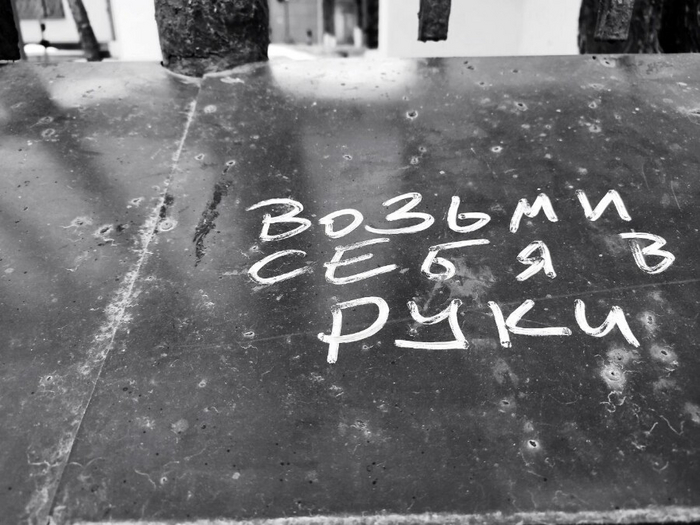 ВОЗЬМИ
СЕБЯ В
РУКИ